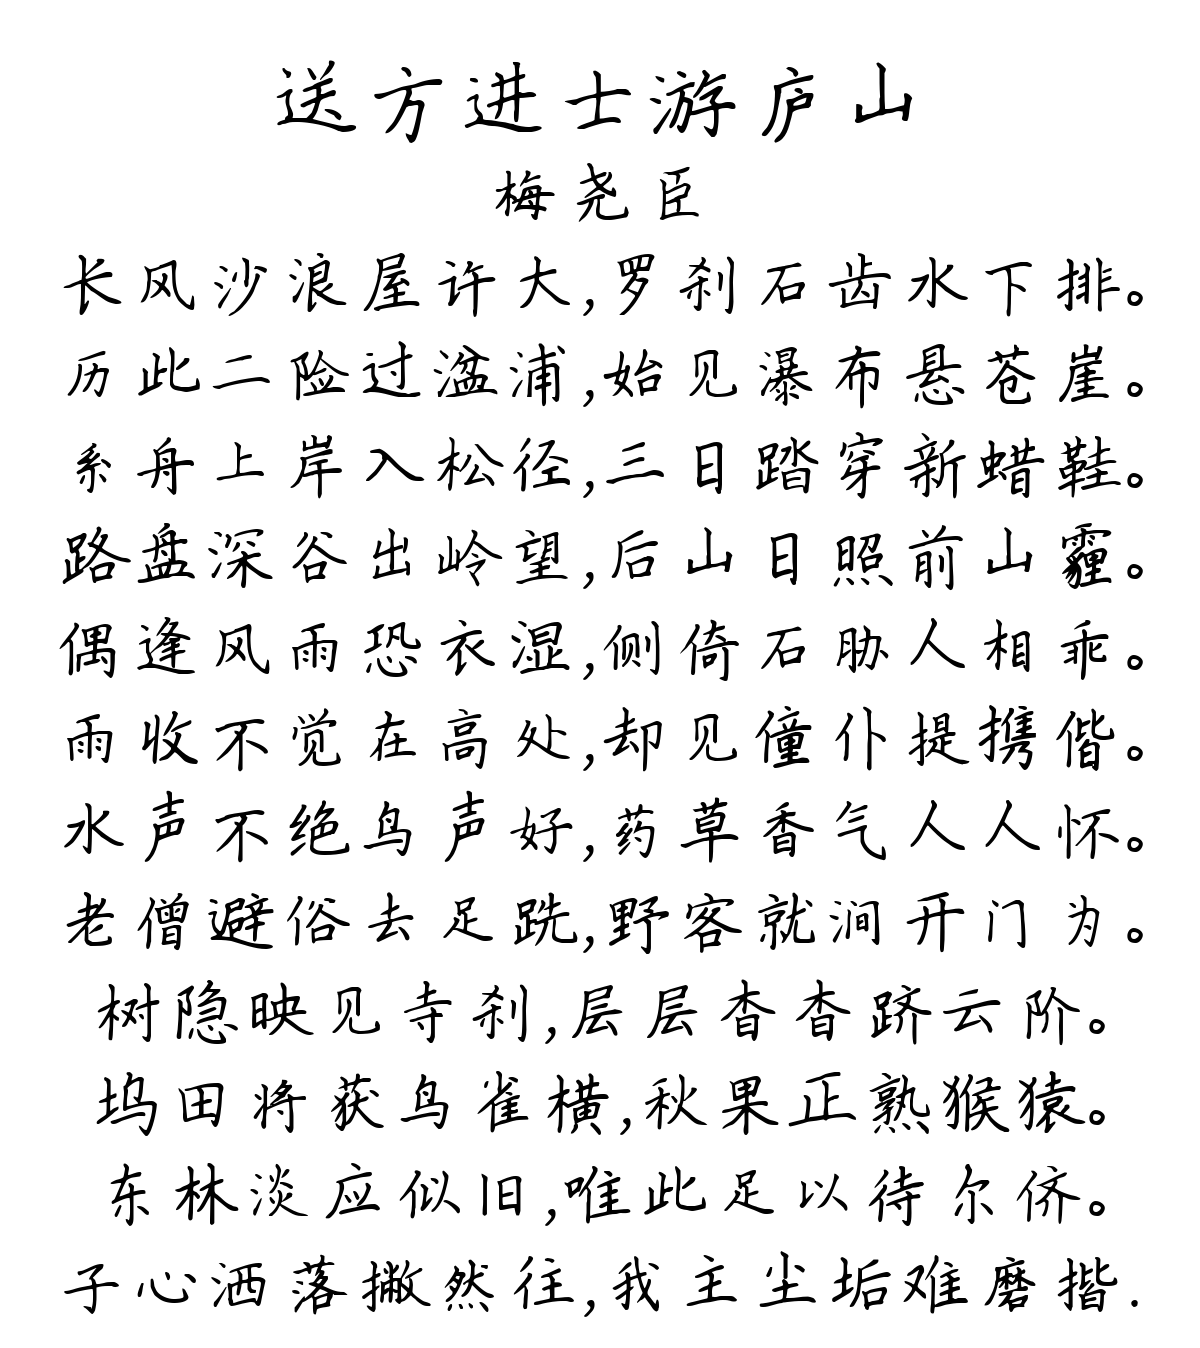 送方进士游庐山
梅尧臣
长风沙浪屋许大,罗刹石齿水下排。
历此二险过湓浦,始见瀑布悬苍崖。
系舟上岸入松径,三日踏穿新蜡鞋。
路盘深谷出岭望,后山日照前山霾。
偶逢风雨恐衣湿,侧倚石胁人相乖。
雨收不觉在高处,却见僮仆提携偕。
水声不绝鸟声好,药草香气人人怀。
老僧避俗去足跣,野客就涧开门为。
树隐映见寺刹,层层杳杳跻云阶。
坞田将获鸟雀横,秋果正熟猴猿。
东林淡应似旧,唯此足以待尔侪。
子心洒落撇然往,我主尘垢难磨揩.